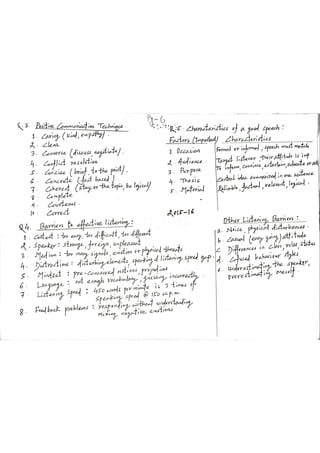 Pg-6
Q.3. Positive Communication Technique
1. Caring (kind, empathy).
2. Clear
3. Converse (discuss, negotiate).
4. Conflict resolution
5. Concise (brief, to the point).
6. Concrete (fact based)
7. Coherent (stay on the topic, be logical)
8. Complete
9. Courteous
10. Correct
Q.4. Barriers to effective listening:
1. Content: too easy, too difficult, too different
2. Speaker: strange, foreign, unpleasant
3. Medium: too many signals, emotion or physical threats
4. Distractions: disturbing elements, speaking & listening speed gap.
5. Mindset: pre-conceived notions, prejudice
6. Language: not enough vocabulary, guessing incorrectly.
7. Listening speed: 450 words per minute is 3 times of
speaking speed @ 150 w.p.m.
8. Feedback problems: responding without understanding
mixing negative emotions
Q.5. Characteristics of a good speech:
Factors (Important) Characteristics
1. Occasion Formal or informal, speech must match
2. Audience Target listener their attitude is imp
3. Purpose To inform, convince, entertain,
4. Thesis Central idea summarised in one sentence.
5. Material Reliable, factual, relevant, logical.
2015-16
Other Listening Barriers:
a. Noise, physical disturbances.
b. Casual (easy going) attitude
c. Difference in class, role, status
d. Confused behaviour styles
e. Underestimating the speaker,
overestimating oneself.